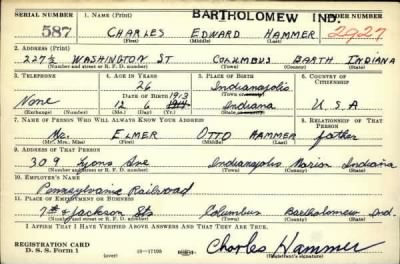 BARTHOLOMEW IND.
SERIAL NUMBER 1. NAME (Print) ORDER NUMBER
587 CHARLES EDWARD HAMMER 2927
(First) (Middle) (Last)
2. ADDRESS (Print)
227½ WASHINGTON ST COLUMBUS BARTH INDIANA
(Number and street or R. F. D. number) (Town) (County) (State)
3. TELEPHONE 4. AGE IN YEARS 5. PLACE OF BIRTH 6. COUNTRY OF CITIZENSHIP
26 Indianapolis
DATE OF BIRTH 1913 (Town or county)
None 12 6 1914 Indiana U.S.A
(Mo.) (Day) (Yr.) (State or country)
7. NAME OF PERSON WHO WILL ALWAYS KNOW YOUR ADDRESS 8. RELATIONSHIP OF THAT PERSON
Mr. ELMER OTTO HAMMER father
(Mr., Mrs., Miss) (First) (Middle) (Last)
9. ADDRESS OF THAT PERSON
309 Lyons Ave Indianapolis Marion Indiana
(Number and street or R. F. D. number) (Town) (County) (State)
10. EMPLOYER'S NAME
Pennsylvania Railroad
11. PLACE OF EMPLOYMENT OR BUSINESS
7th & Jackson Sts Columbus Bartholomew Ind.
(Number and street or R. F. D. number) (Town) (County) (State)
I AFFIRM THAT I HAVE VERIFIED ABOVE ANSWERS AND THAT THEY ARE TRUE.
REGISTRATION CARD
D. S. S. FORM 1 (over) 16—17105 Charles Hammer
(Registrant's signature)